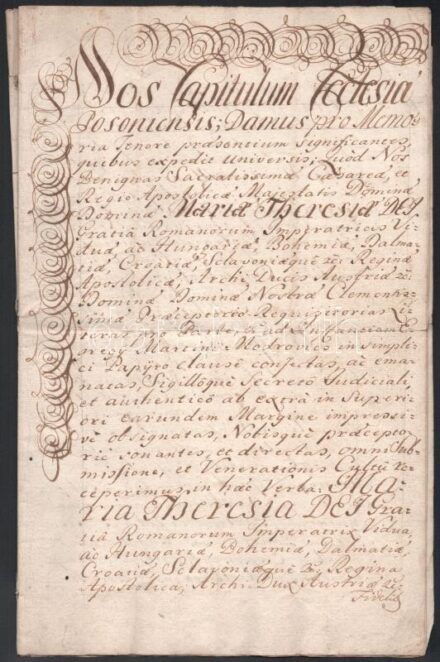 Nos Capitulum Ecclesiæ
Posoniensis; Damus pro Memo-
ria Tenore præsentium Significantes,
quibus expedit Universis; Quod Nos
Benignas Sacratissimæ Cæsareæ, et
Regio Apostolicæ Majestatis Dominæ
Dominæ Mariæ Theresiæ DEI
Gratiâ Romanorum Imperatricis Vi-
duæ, ac Hungariæ, Bohemiæ, Dalma-
tiæ, Croatiæ, Sclavoniæque &c. Reginæ
Apostolicæ, Archi-Ducis Austriæ &c.
Dominæ Dominæ Nostræ Clementis-
simæ Præceptorio Requisitorias Li-
teras Pro Parte, et ad Instantiam E-
Martini Modronics in simpli-
ci Papyro clausè confectas, ac ema-
natas, Sigillôque Secretô Judiciali,
et authenticô ab extra in Superi-
ori earundem Margine impressi-
vè obsignatas, Nobisque præcepto-
riè sonantes, et directas, omni Sub-
missione, et Venerationis Cultu re-
ceperimus, in hæc Verba: Ma-
ria Theresia DEI Gra-
tiâ Romanorum Imperatrix Vidua,
ac Hungariæ, Bohemiæ, Dalmatiæ,
Croatiæ, Sclavoniæque &c. Regina
Apostolica, Archi-Dux Austriæ &c.
Fidelib